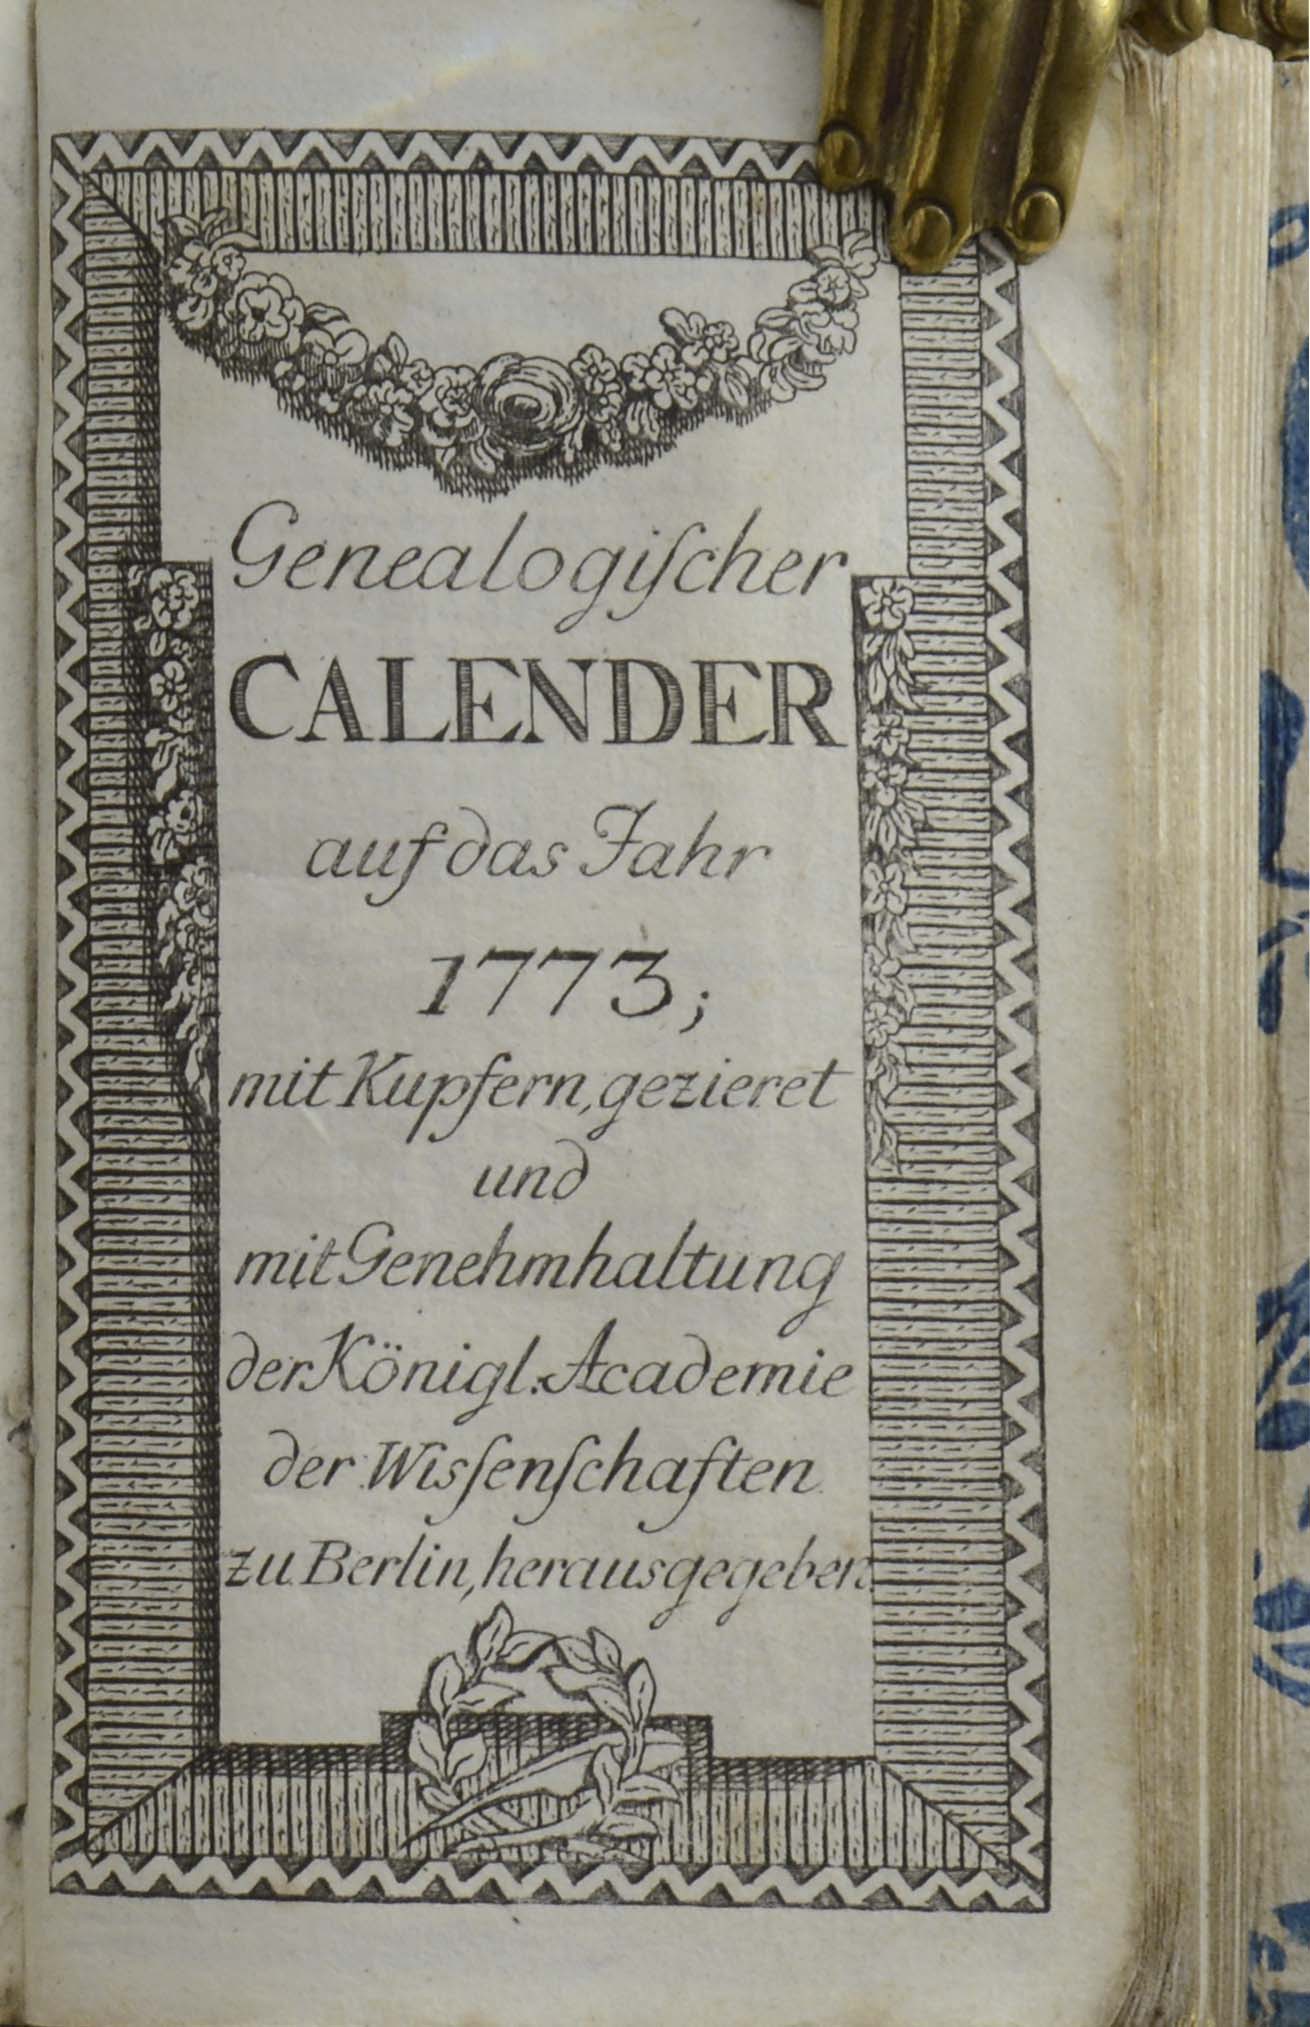 Genealogiſcher
CALENDER
auf das Jahr
1773;
mit Kupfern, gezieret
und
mit Genehmhaltung
der Königl. Academie
der Wisſenſchaften
zu Berlin, herausgegeben.